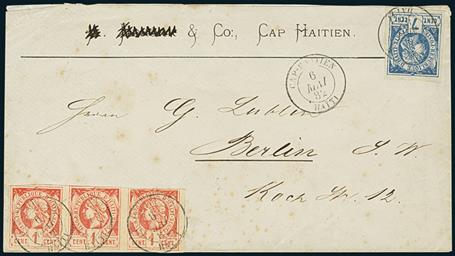 & Co., CAP HAITIEN.
CAP-HAITIEN
6
MAI
82
HAITI
7
CENT
CENT
HAITI
Herrn G. Lublin
Berlin S. W.
Koch Str. 12.
1 1 1
CENT CENT CENT CENT CENT CENT
HAITI HAITI HAITI